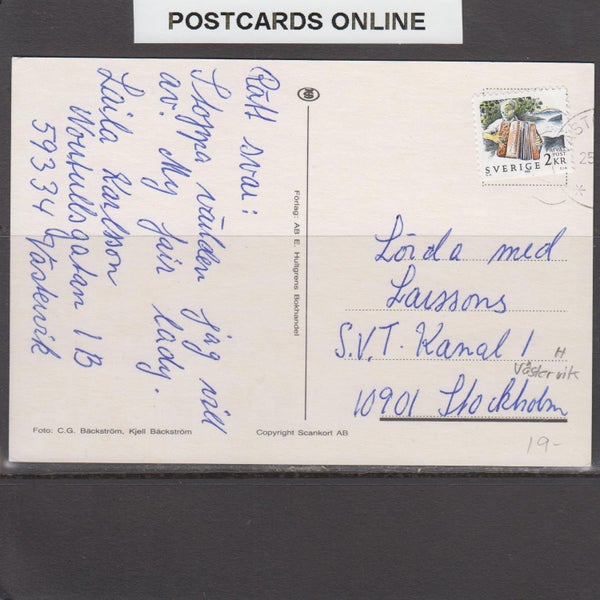 POSTCARDS ONLINE
Rätt svar:
Stoppa världen jag vill
av. My fair lady.
Laila Karlsson
59334 Västervik
Förlag: AB E. Hultgrens Bokhandel
SVERIGE 2KR
Lörda med
Larssons
S.V.T. Kanal 1
H
Västervik
10901 Stockholm
19-
Foto: C.G. Bäckström, Kjell Bäckström
Copyright Scankort AB